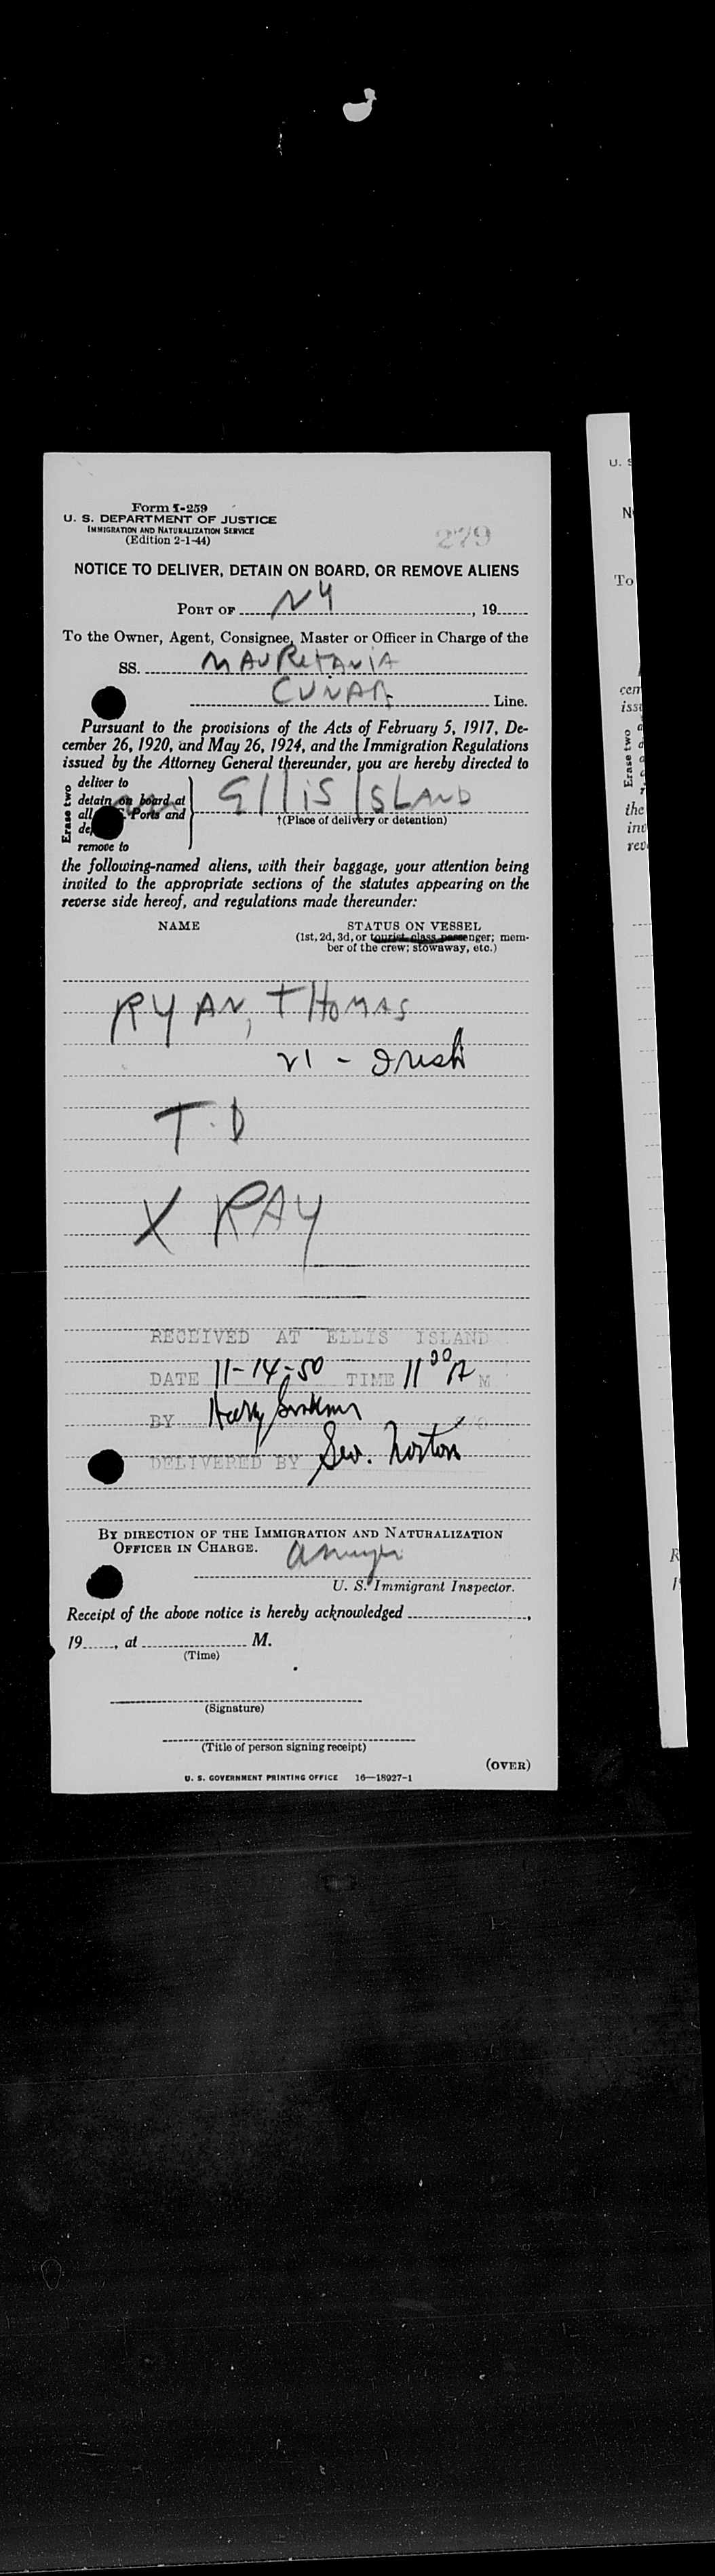 Form I-259
U. S. DEPARTMENT OF JUSTICE
IMMIGRATION AND NATURALIZATION SERVICE
(Edition 2-1-44)
279
NOTICE TO DELIVER, DETAIN ON BOARD, OR REMOVE ALIENS
PORT OF NY, 19
To the Owner, Agent, Consignee, Master or Officer in Charge of the
SS. MAURETANIA
CUNARD Line.
Pursuant to the provisions of the Acts of February 5, 1917, De-
cember 26, 1920, and May 26, 1924, and the Immigration Regulations
issued by the Attorney General thereunder, you are hereby directed to
Erase two
deliver to
detain on board at
all Ports and
remove to
ELLIS ISLAND
†(Place of delivery or detention)
the following-named aliens, with their baggage, your attention being
invited to the appropriate sections of the statutes appearing on the
reverse side hereof, and regulations made thereunder:
NAME
STATUS ON VESSEL
(1st, 2d, 3d, or tourist class passenger; mem-
ber of the crew; stowaway, etc.)
RYAN, THOMAS
21 - Irish
T.D
X RAY
RECEIVED AT ELLIS ISLAND
DATE 11-14-50 TIME 11 00 A M
BY Harry
DELIVERED BY Norton
BY DIRECTION OF THE IMMIGRATION AND NATURALIZATION
OFFICER IN CHARGE.
U. S. Immigrant Inspector.
Receipt of the above notice is hereby acknowledged ,
19 , at M.
(Time)
(Signature)
(Title of person signing receipt)
(OVER)
U. S. GOVERNMENT PRINTING OFFICE 16—18927-1
U. S
N
To
cem
issu
Erase two
the
inv
rev